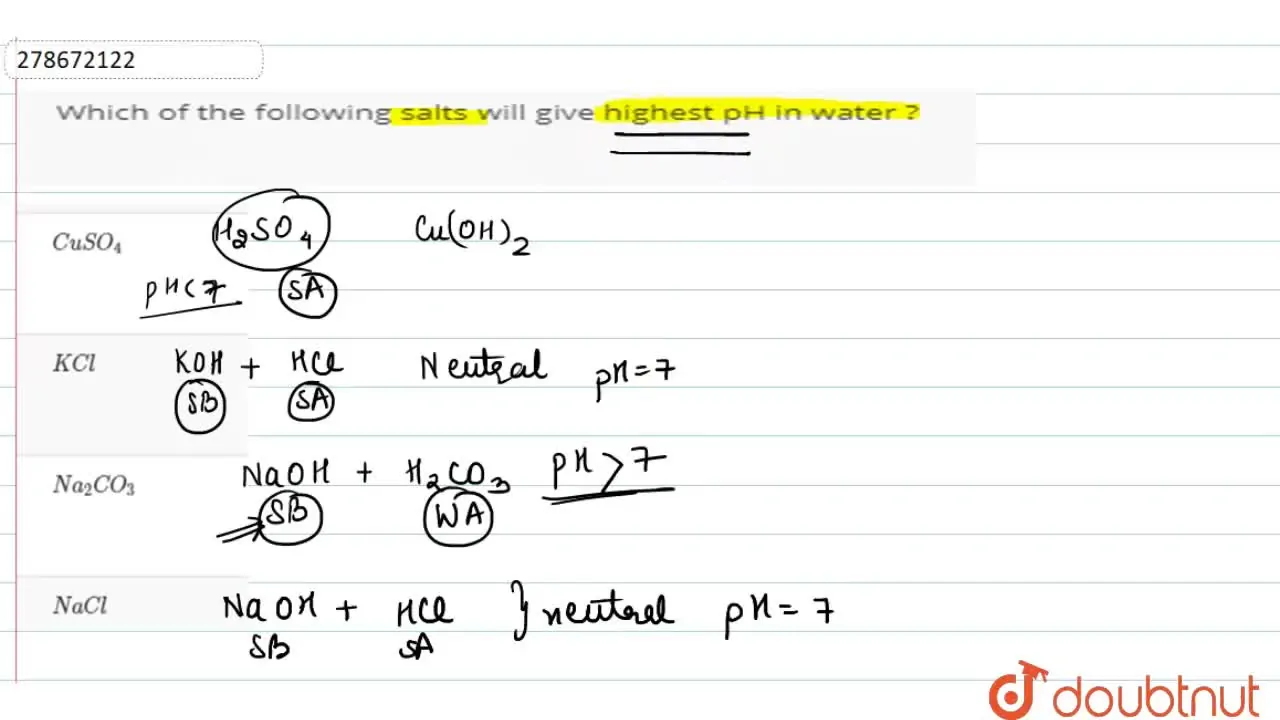 278672122
Which of the following salts will give highest pH in water ?
CuSO₄ H₂SO₄ Cu(OH)₂
pH<7 SA
KCl KOH + HCl Neutral pH=7
SB SA
Na₂CO₃ NaOH + H₂CO₃ pH>7
SB WA
NaCl NaOH + HCl } neutral pH=7
SB SA
doubtnut